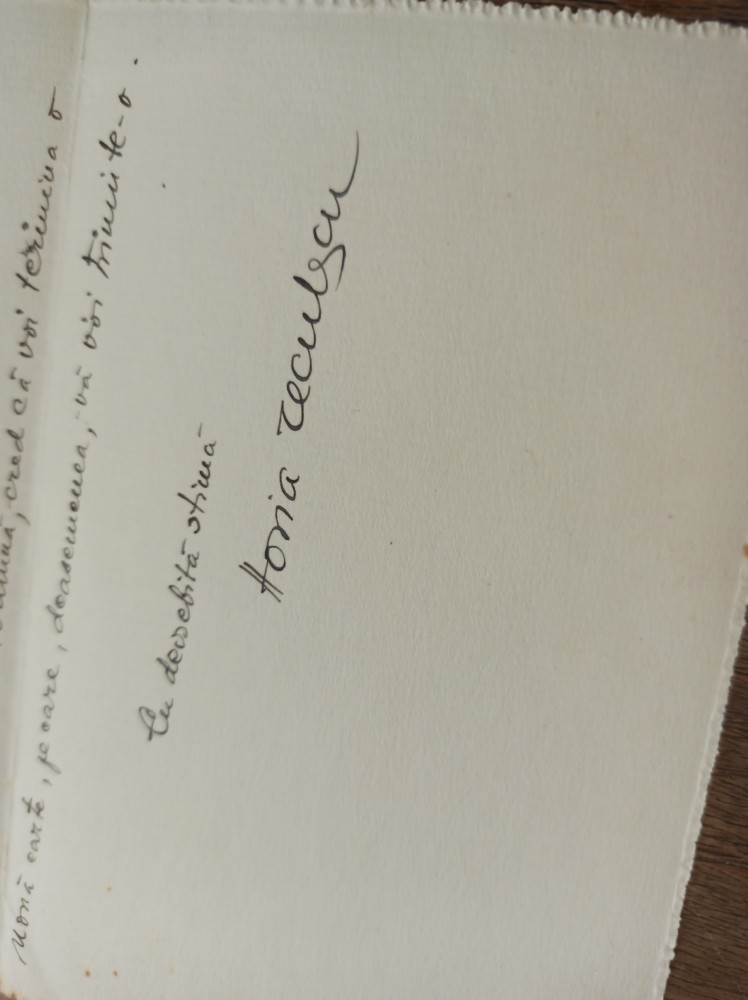 toamnă, cred că voi termina o
nouă carte, pe care, deasemenea, vă voi trimite-o.
Cu deosebită stimă
Horia Teculescu